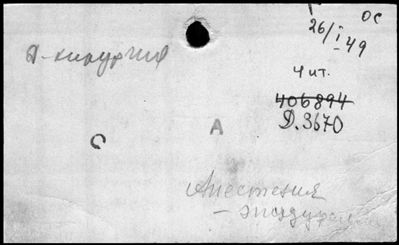 ОС
26/I 49
А-хирургия
Чит.
406894
Д.3670
С
А
Анестезия
–